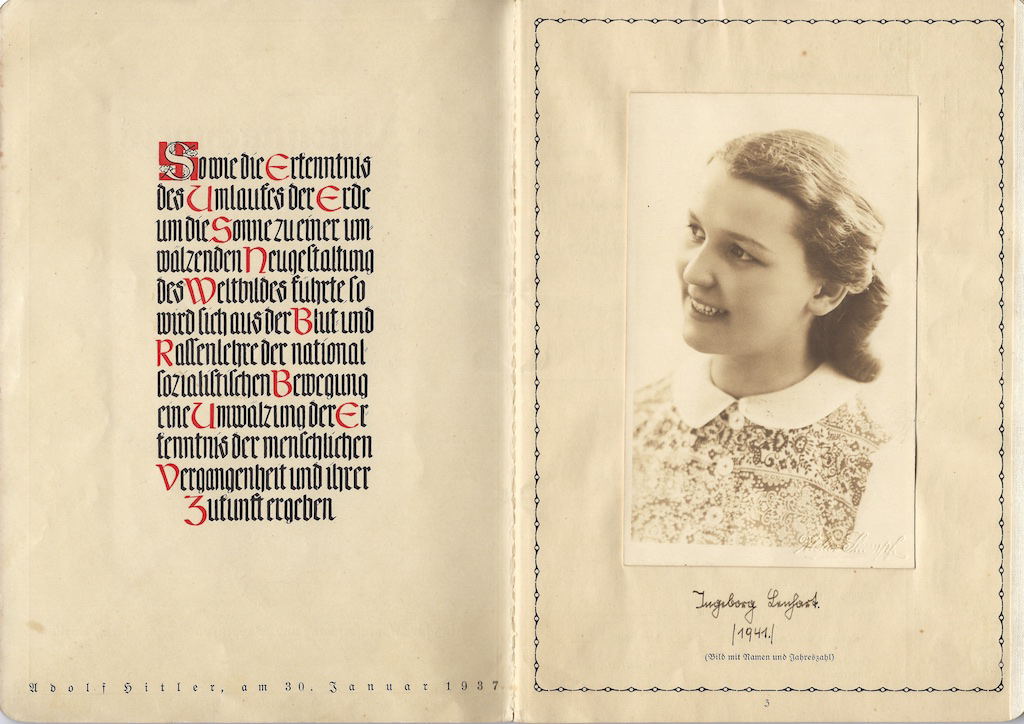 Sowie die Erkenntnis
des Umlaufes der Erde
um die Sonne zu einer um-
wälzenden Neugestaltung
des Weltbildes führte so
wird sich aus der Blut und
Rassenlehre der national
sozialistischen Bewegung
eine Umwälzung der Er
kenntnis der menschlichen
Vergangenheit und ihrer
Zukunft ergeben
Adolf Hitler, am 30. Januar 1937
Ingeborg Lenhart.
/1941./
(Bild mit Namen und Jahreszahl)
3